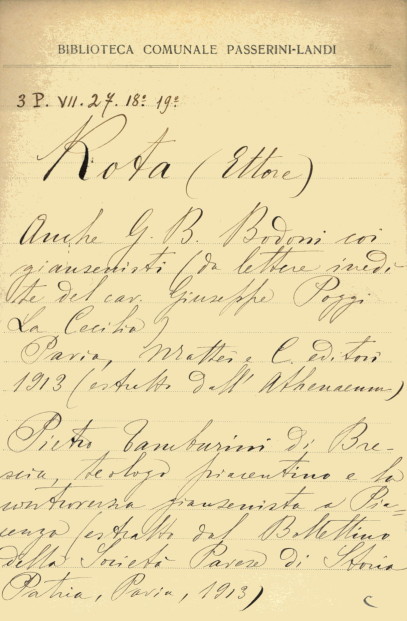 BIBLIOTECA COMUNALE PASSERINI-LANDI
3 P. VII. 27. 18º 19º
Rota (Ettore)
Anche G. B. Bodoni coi
giansenisti (da lettere inedi
te del cav. Giuseppe Poggi
La Cecilia)
Pavia, Mattei e C. editori
1913 (estratto dall' Athenaeum)
Pietro Tamburini di Bre-
scia, teologo piacentino e la
controversia giansenista a Pia=
cenza (estratto dal Bollettino
della Società Pavese di Storia
Patria, Pavia, 1913)